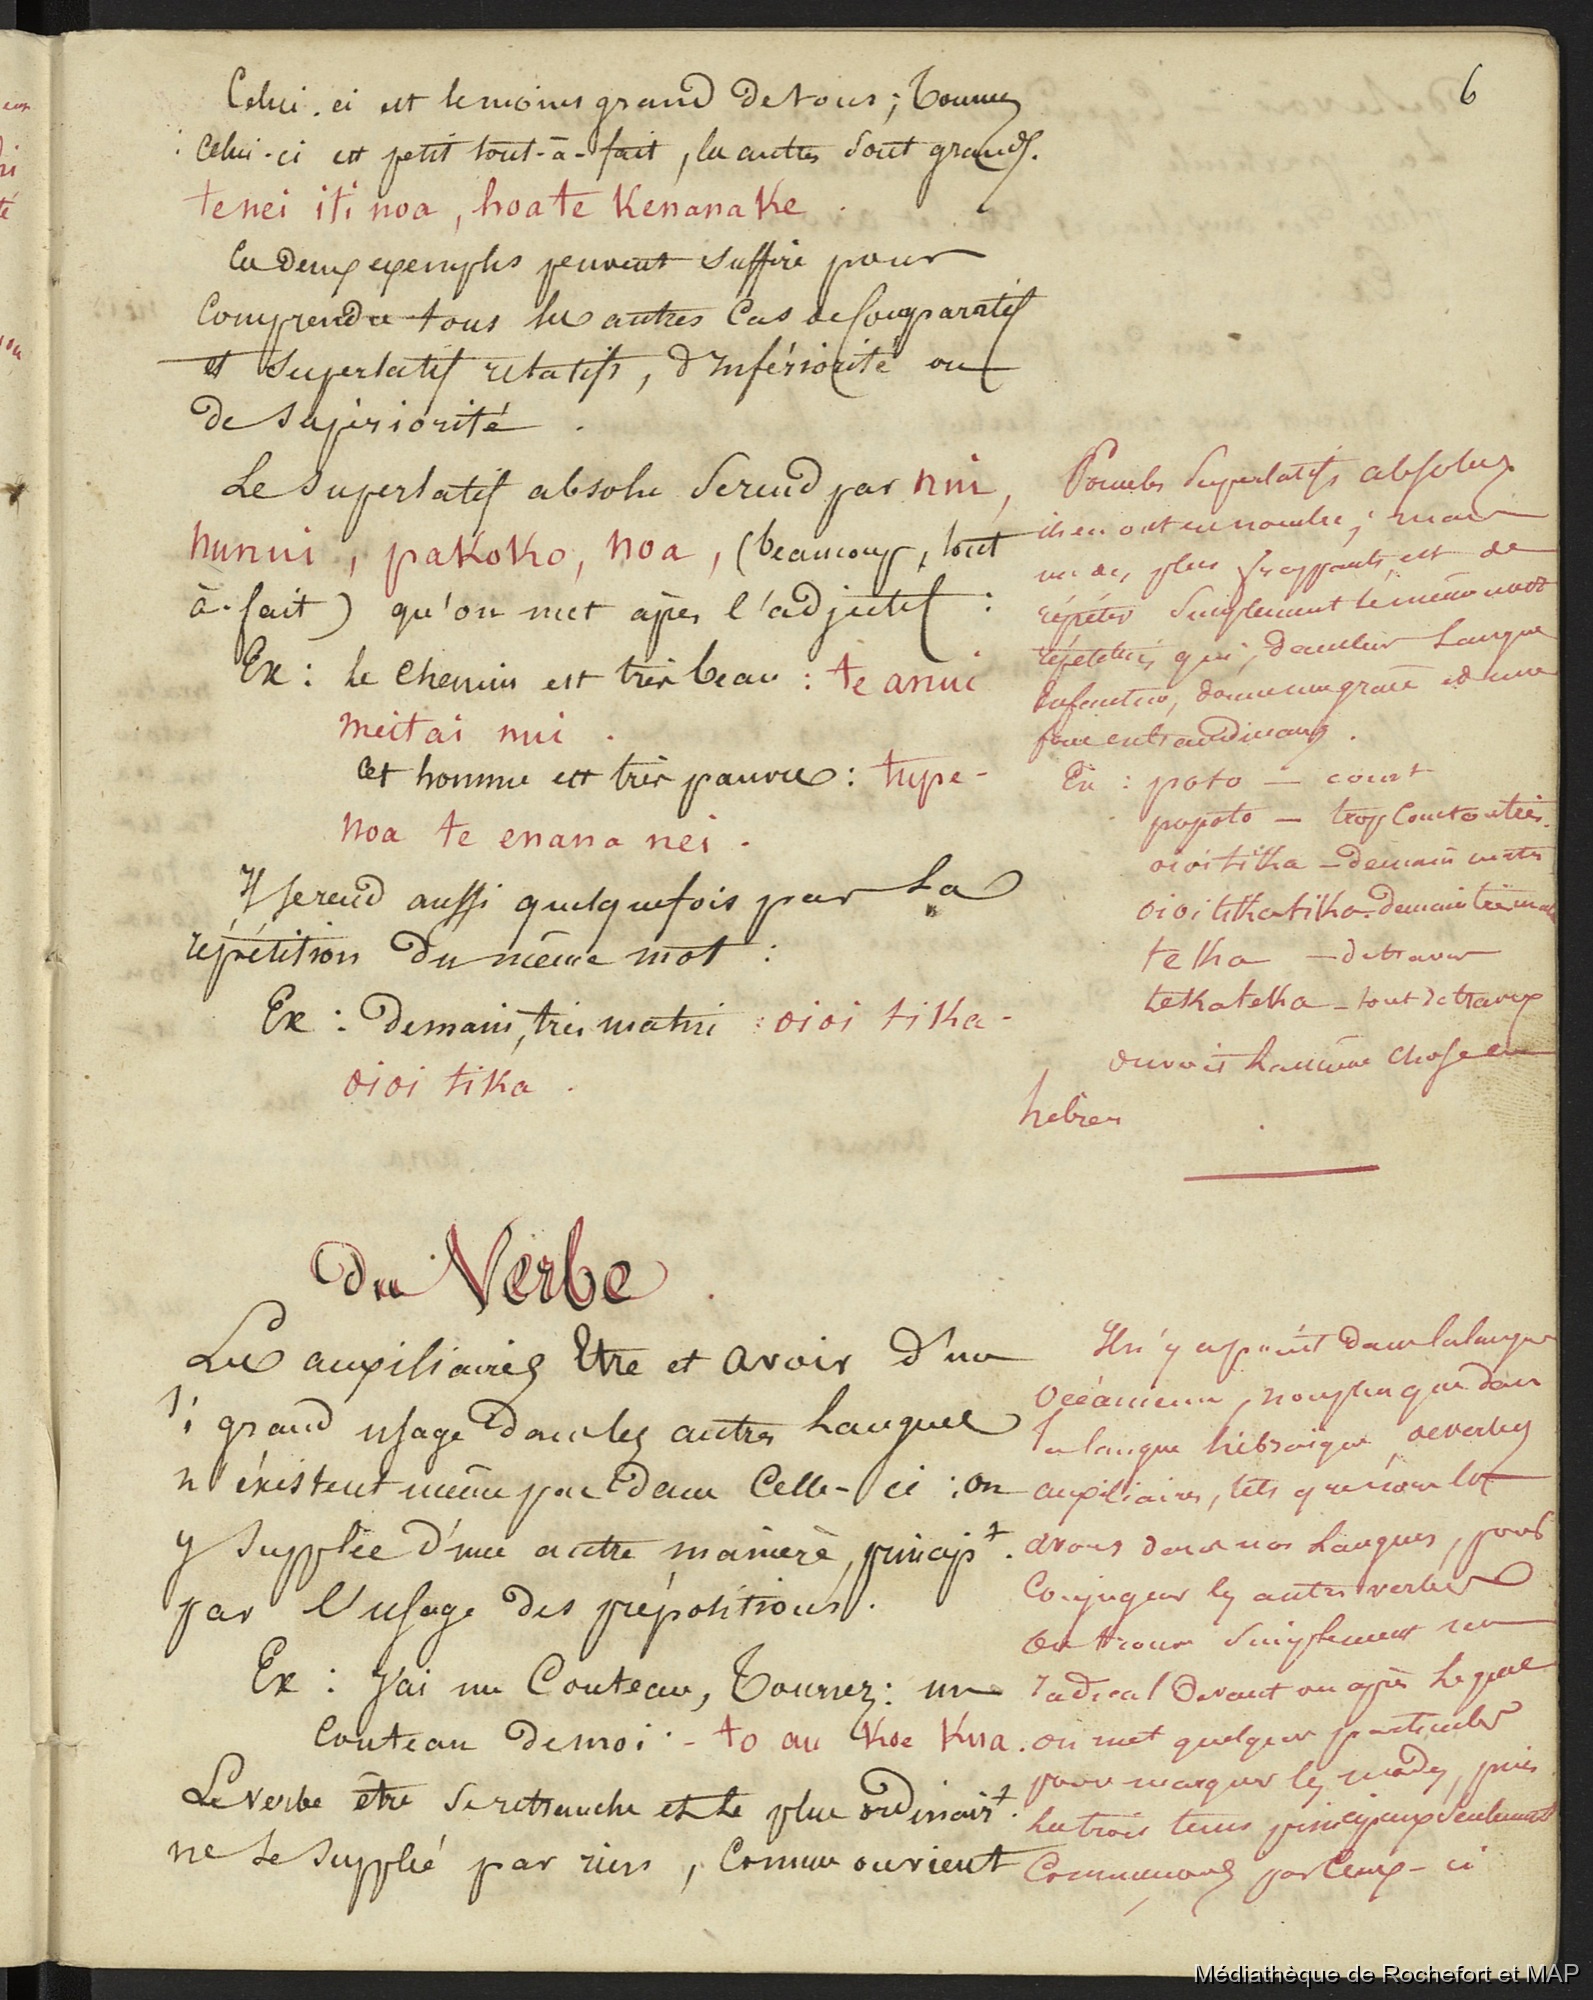 6
Celui-ci est le moins grand de tous; Tournez
: Celui-ci est petit tout-à-fait, les autres sont grands.
tenei iti noa, hoa te Kenana Ke.
Ces deux exemples peuvent suffire pour
Comprendre tous les autres Cas de Comparatifs
et Superlatifs relatifs, d'infériorité ou
de supériorité.
Le Superlatif absolu se rend par nui,
nunui, paKoKo, noa, (beaucoup, tout
à-fait) qu'on met après l'adjectif :
Ex : le chemin est très beau : te anui
meitai nui.
Cet homme est très pauvre : tupe-
noa te enana nei.
Il se rend aussi quelquefois par la
répétition du même mot :
Ex : Demain, très matin : oioi tika-
oioi tika.
Pour les Superlatifs absolus
ils en ont en nombre; mais
un des plus frappants, est de
répéter simplement le même mot
répétitions qui, dans leur Langue
Enfantine, donne une grace et une
force extraordinaires.
Ex : poto — court
popoto — trop Court ou très.
oioi tika — demain matin
oioi tikatika — demain très matin
teka — de travers
tekateka — tout de travers
on voit la même chose en
hébreu
Du Verbe.
Les auxiliaires Etre et avoir d'un
si grand usage dans les autres Langues
n'éxistent même pas dans Celle-ci : on
y Supplée d'une autre manière, princip^t.
par l'usage des prépositions.
Ex : J'ai un Couteau, Tournez : un
Couteau de moi - to au Koe Kua.
Le verbe être se retranche et le plus ordinair^t.
ne se supplée par rien, comme on vient
Il n'y a point dans la langue
Océanienne, non plus que dans
la langue hébraïque, de verbes
auxiliaires, tels que nous les
avons dans nos Langues, pour
Conjuguer les autres verbes
On trouve simplement un
radical devant ou après lequel
on met quelques particules
pour marquer les modes, puis
les trois tems principaux seulement
Commençons par Ceux-ci
Médiathèque de Rochefort et MAP